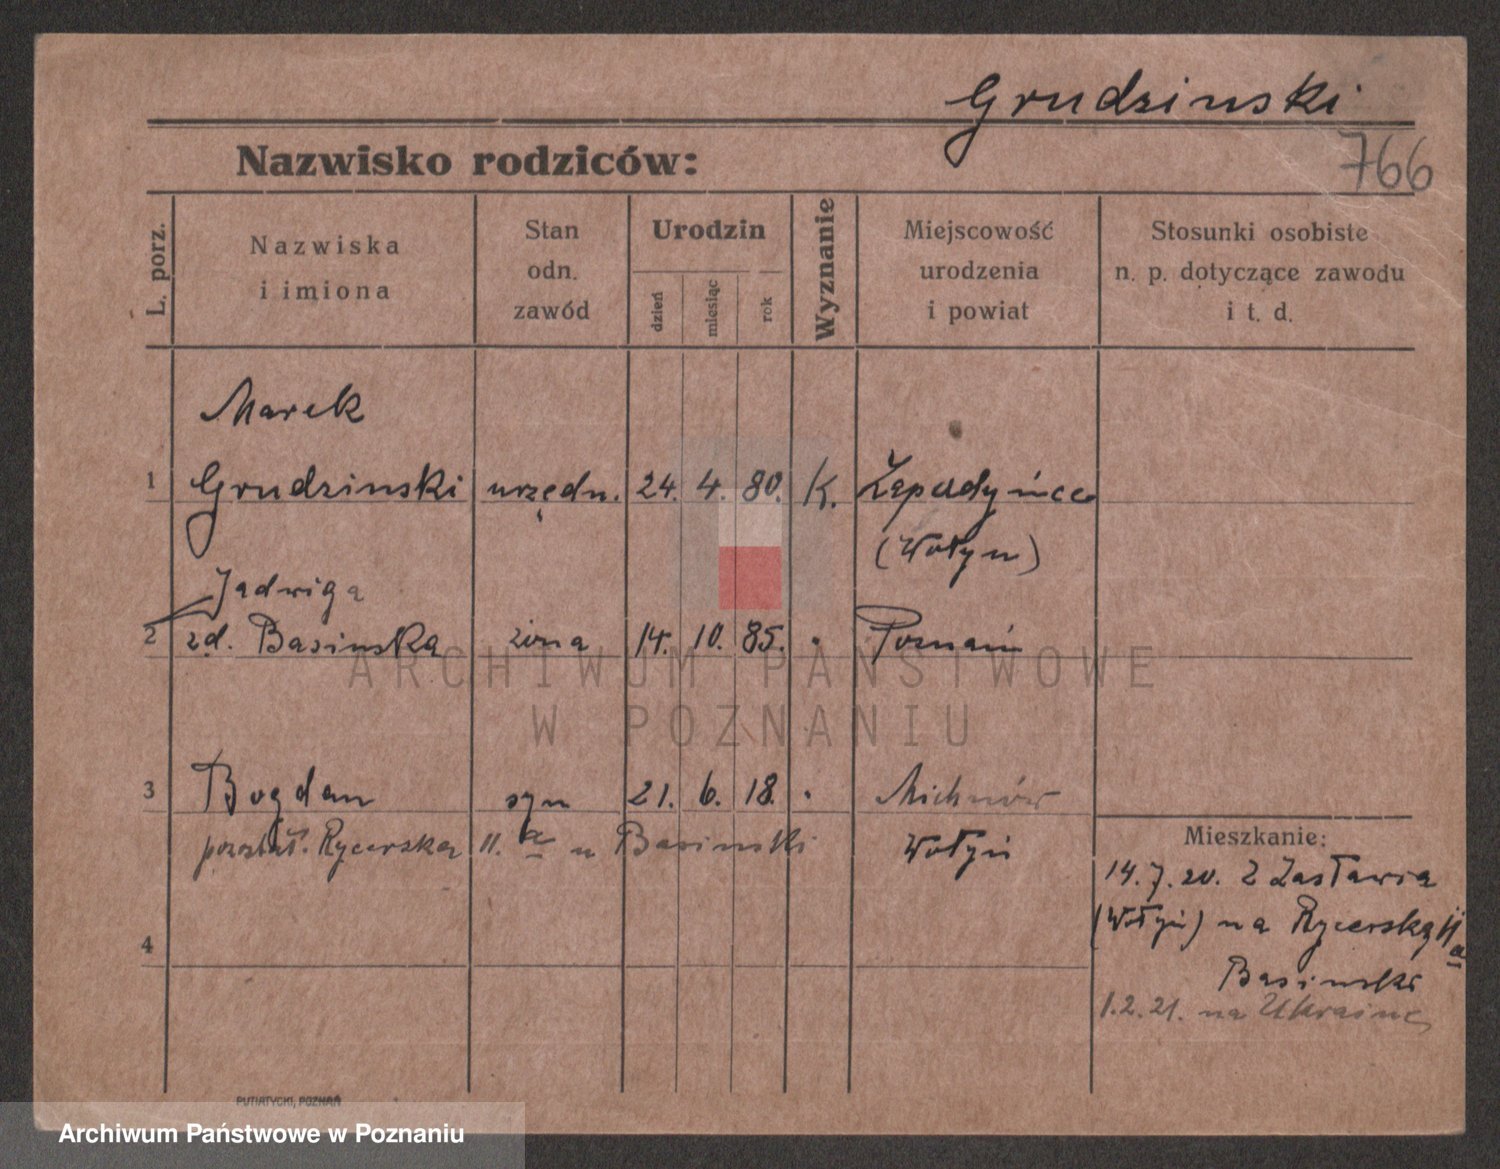 Grudzinski
766
Nazwisko rodziców:
L. porz.
Nazwiska i imiona
Stan odn. zawód
Urodzin
dzień
miesiąc
rok
Wyznanie
Miejscowość urodzenia i powiat
Stosunki osobiste n. p. dotyczące zawodu i t. d.
Marek
1 Grudzinski urzędn. 24. 4. 80. K.
(Wołyn)
Jadwiga
2 zd. Basinska żona 14. 10. 85. " Poznań
3 Bogdan syn 21. 6. 18. " Michnów
pozostał. Rycerska 11. a u Basinski Wołyń
4
Mieszkanie:
14.7.20. z Zasławia
(Wołyń) na Rycerską 11 a
Basinski
1.2.21. na Ukrainę
ARCHIWUM PAŃSTWOWE
W POZNANIU
PUTIATYCKI, POZNAŃ
Archiwum Państwowe w Poznaniu